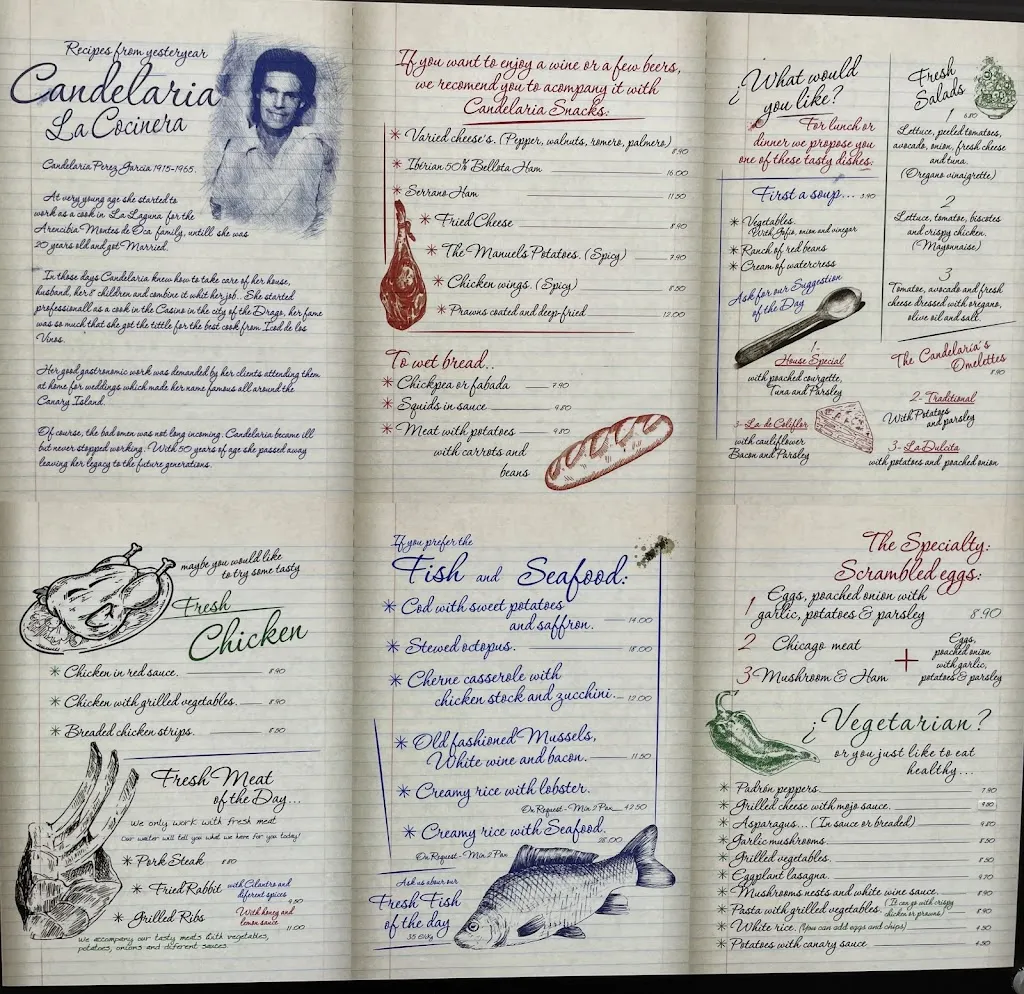 Recipes from yesteryear
Candelaria
La Cocinera
Candelaria Perez Garcia 1915-1965.
At very young age she started to
work as a cook in La Laguna for the
Arencibia Montes de Oca family, untill she was
20 years old and get Married.
In those days Candelaria knew how to take care of her house,
husband, her 8 children and combine it whit her job.. She started
professionall as a cook in the Casino in the city of the Drago, her fame
was so much that she got the tittle for the best cook from Icod de los
Vinos.
Her good gastronomic work was demanded by her clients attending them
at home for weddings which made her name famous all around the
Canary Island.
Of course, the bad omen was not long incoming. Candelaria became ill
but never stopped working. With 50 years of age she passed away
leaving her legacy to the future generations.
If you want to enjoy a wine or a few beers,
we recomend you to acompany it with
Candelaria Snacks:
* Varied cheese's. (Pepper, walnuts, romero, palmero)
8.90
* Iberian 50% Bellota Ham 16.00
* Serrano Ham 11.50
* Fried Cheese 8.90
* The Manuels Potatoes. (Spicy) 7.90
* Chicken wings. (Spicy) 8.50
* Prawns coated and deep-fried 12.00
To wet bread..
* Chickpea or fabada 7.90
* Squids in sauce 9.80
* Meat with potatoes 9.80
with carrots and
beans
¿What would
you like?
For lunch or
dinner we propose you
one of these tasty dishes:
First a soup... 5.90
* Vegetables.
With Gofio, onion and vinegar
* Ranch of red beans
* Cream of watercress
Ask for our Suggestion
of the Day
Fresh
Salads
1 6.80
Lettuce, peeled tomatoes,
avocado, onion, fresh cheese
and tuna.
(Oregano vinaigrette)
2
Lettuce, tomato, biscotes
and crispy chicken.
(Mayonnaise)
3
Tomato, avocado and fresh
cheese dressed with oregano,
olive oil and salt.
The Candelaria's
Omelettes
8.90
1-
House Special
with poached courgette,
Tuna and Parsley
2- Traditional
With Potatoes
and parsley
3- La de Coliflor
with cauliflower
Bacon and Parsley
3- La Dulcita
with potatoes and poached onion
maybe you would like
to try some tasty
Fresh
Chicken
* Chicken in red sauce. 8.90
* Chicken with grilled vegetables. 8.90
* Breaded chicken strips. 8.50
Fresh Meat
of the Day...
We only work with fresh meat
Our waiter will tell you what we have for you today!
* Pork Steak 8.80
* Fried Rabbit with Cilantro and
diferent spices
9.50
* Grilled Ribs With honey and
lemon sauce
11.00
We accompany our tasty meats with vegetables,
potatoes, onions and diferent sauces
If you prefer the
Fish and Seafood:
* Cod with sweet potatoes
and saffron. 14.00
* Stewed octopus. 18.00
* Cherne casserole with
chicken stock and zucchini. 12.00
* Old fashioned Mussels,
White wine and bacon. 11.50
* Creamy rice with lobster.
On Request - Min 2 Pax 42.50
* Creamy rice with Seafood.
28.00
On Request - Min 2 Pax
Ask us about our
Fresh Fish
of the day
35 €/Kg
The Specialty:
Scrambled eggs:
1 Eggs, poached onion with
garlic, potatoes & parsley 8.90
2 Chicago meat
3 Mushroom & Ham
+
Eggs,
poached onion
with garlic,
potatoes & parsley
¿Vegetarian?
or you just like to eat
healthy...
* Padron peppers 7.90
* Grilled cheese with mojo sauce. 9.80
* Asparagus... (In sauce or breaded)
* Garlic mushrooms. 8.50
* Grilled vegetables. 8.50
* Eggplant lasagna.
* Mushrooms nests and white wine sauce. 8.90
* Pasta with grilled vegetables. (It can go with crispy
chicken or prawns) 8.90
* White rice. (You can add eggs and chips) 4.50
* Potatoes with canary sauce 4.50